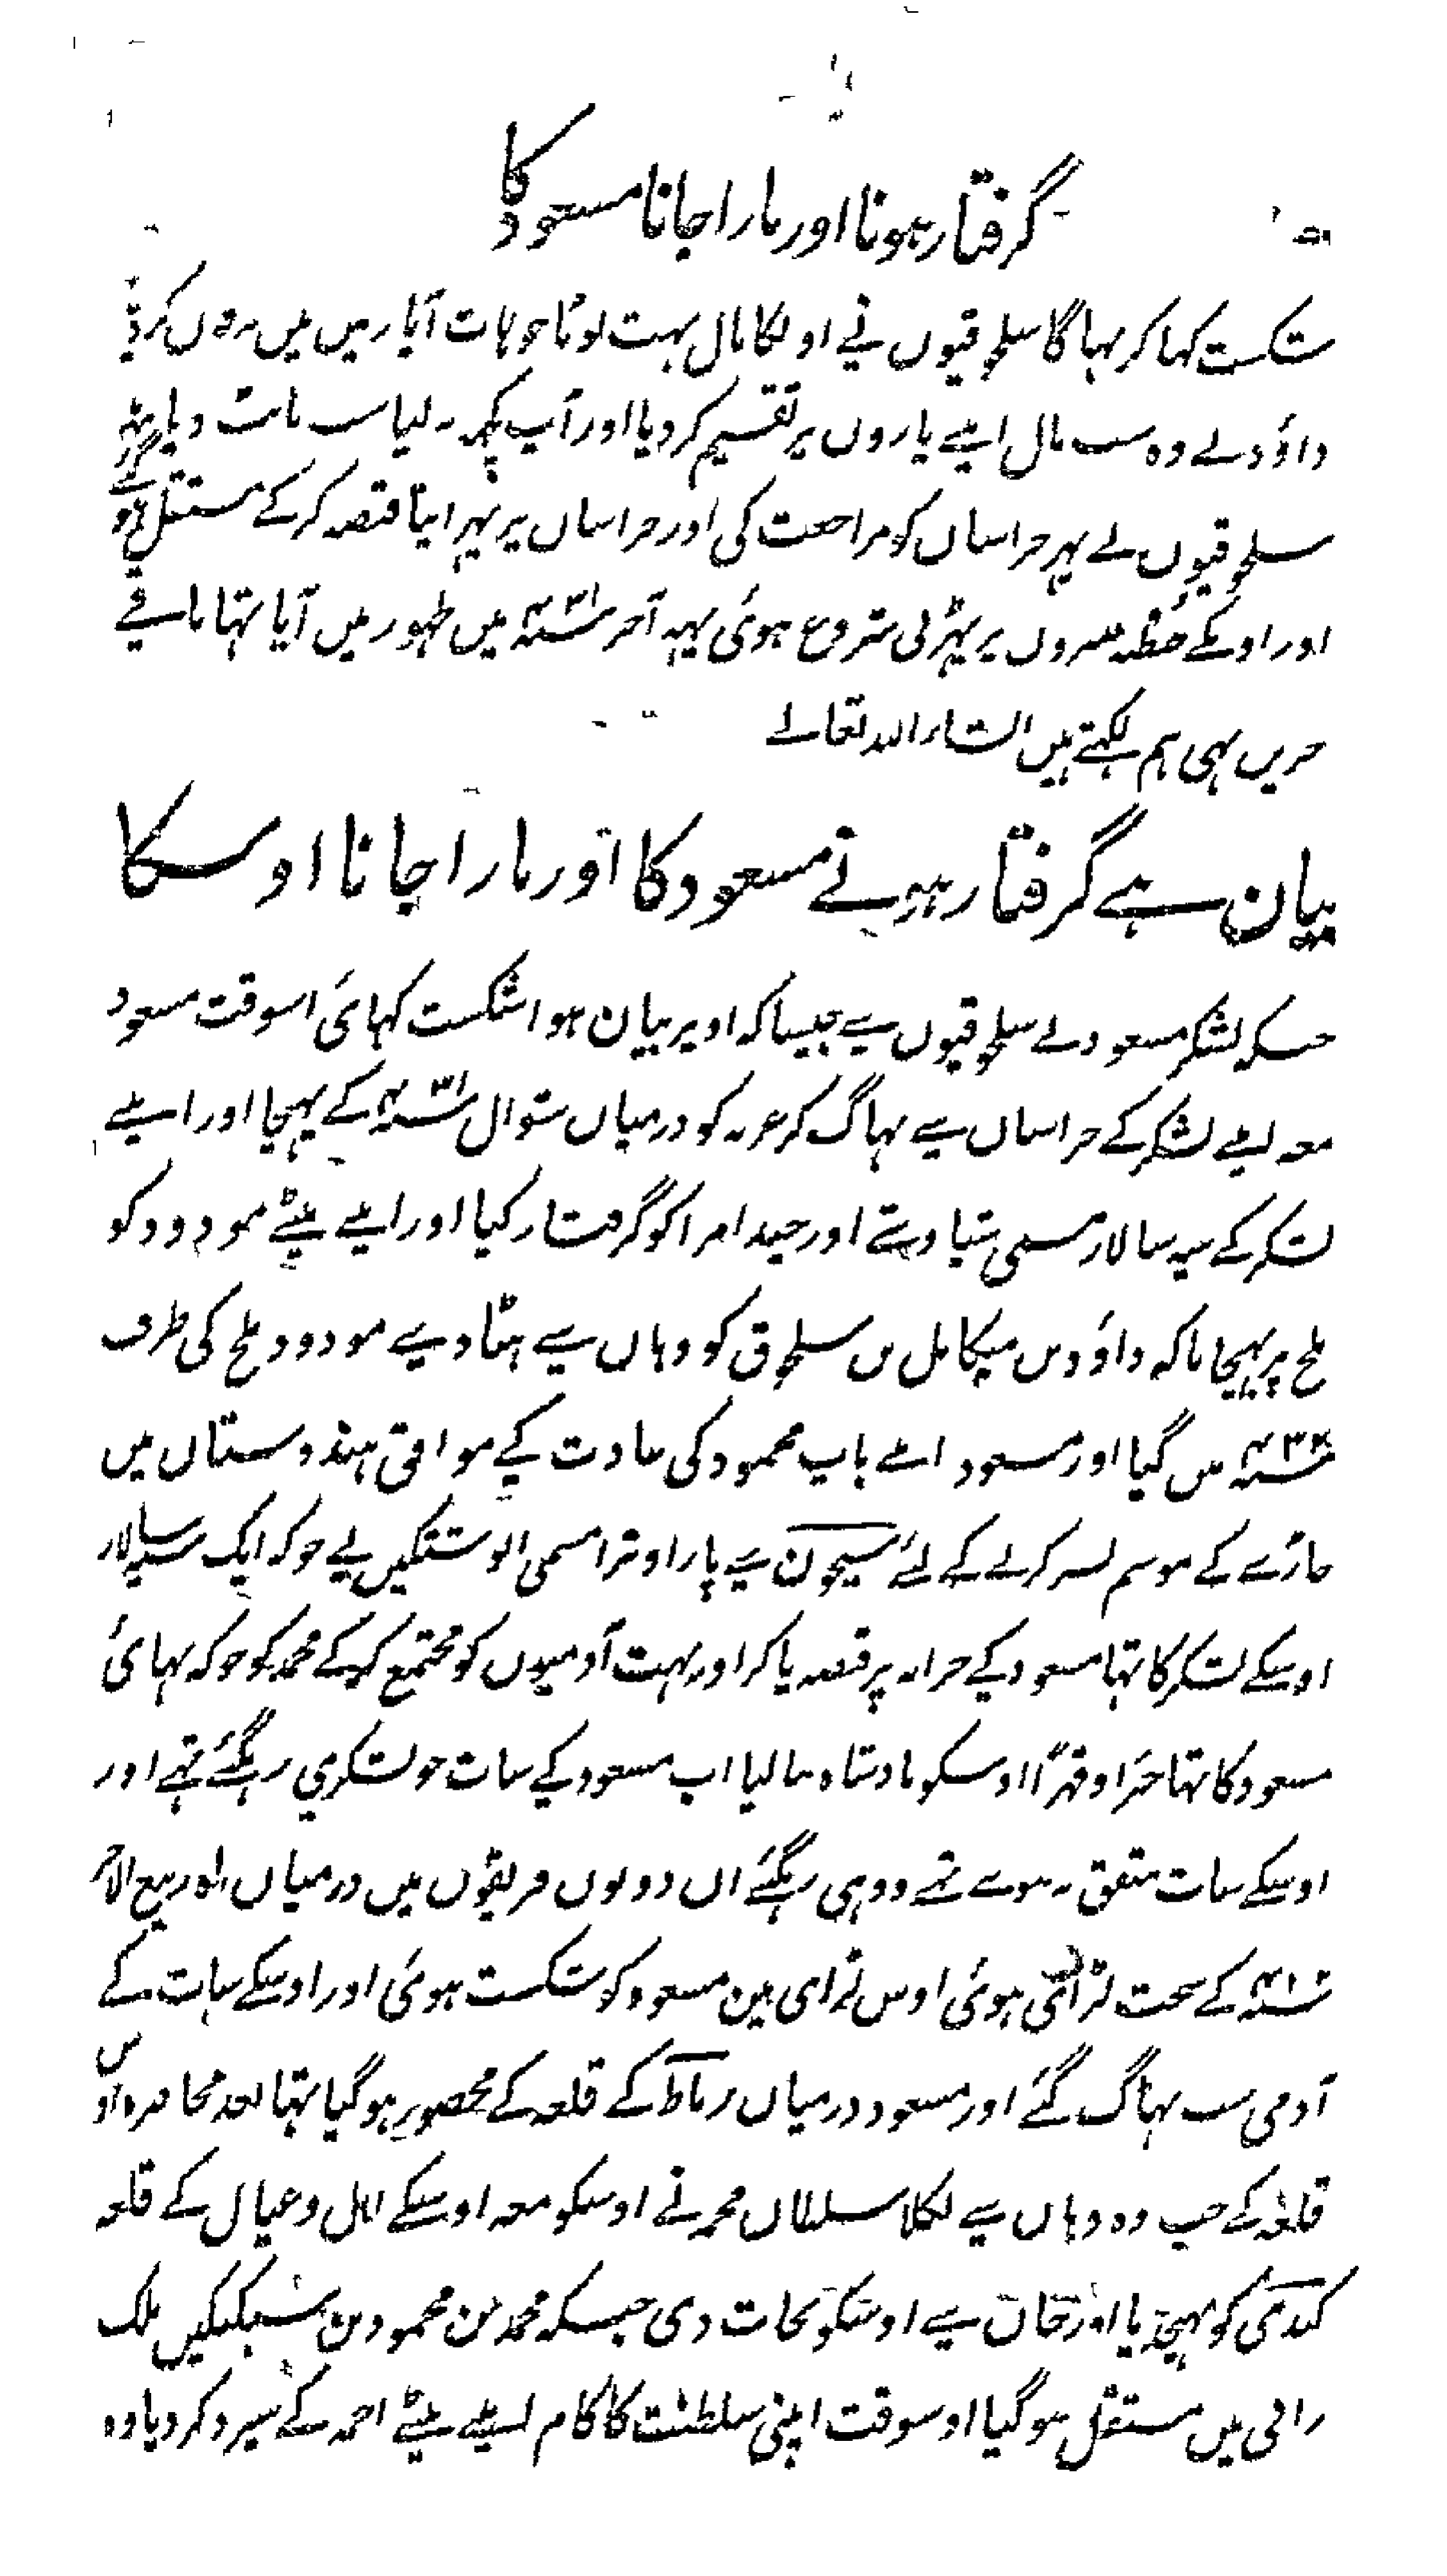 گرفتار ہونا اور مارا جانا مسعود کا
شکست کہا کر بہاگا سلجوقیوں نے اونکا مال بہت لوٹا جو ہات آیا زمیں میں
داؤد نے وہ سب مال اپنے یاروں پر تقسیم کر دیا اور آپ کچہہ نہ لیا سب بانٹ دیا پھر
سلجوقیوں نے پہر خراسان کو مراجعت کی اور خراسان پر پہر اپنا قبضہ کر کے مستقل ہو گئے
اور اونکے خطبہ ممبروں پر پہڑنی شروع ہوئی یہہ آخر سنہ ۴۳۱ میں ظہور میں آیا تہا باقی
خریں بہی ہم لکہتے ہیں انشاء اللہ تعالے
بیان ہے گرفتار ہونے مسعود کا اور مارا جانا اوسکا
جبکہ لشکر مسعود نے سلجوقیوں سے جیسا کہ اوپر بیان ہوا شکست کہائی اسوقت مسعود
معہ اپنے لشکر کے خراسان سے بہاگ کر غزنہ کو درمیان شوال سنہ ۴۳۱ کے پہنچا اور اپنے
لشکر کے سپہ سالار مسمی شباوشے اور چند امرا کو گرفتار کیا اور اپنے بیٹے مودود کو
بلخ پر بہیجا تاکہ داؤد بن میکائل بن سلجوق کو وہاں سے ہٹا دیے مودود بلخ کی طرف
سنہ ۴۳۲ میں گیا اور مسعود اپنے باپ محمود کی عادت کے موافق ہندوستان میں
جاڑے کے موسم بسر کرنے کے لئے سیحون سے پار اوترا مسمی انوشتگین نے جو کہ ایک سپہ سالار
اوسکے لشکر کا تہا مسعود کے خزانہ پر قبضہ پا کر اور بہت آدمیوں کو مجتمع کر کے محمد کو جو کہ بہائی
مسعود کا تہا جبراً و قہراً اوسکو بادشاہ بنا لیا اب مسعود کے سات جو لشکری رہگئے تہے اور
اوسکے سات متفق نہ ہوے تہے وہ ہی رہگئے ان دونوں فریقوں میں درمیان ماہ ربیع الآخر
کے سخت لڑائی ہوئی اوس لڑای مین مسعود کو شکست ہوئی اور اوسکے سات کے
آدمی سب بہاگ گئے اور مسعود درمیان رباط کے قلعہ کے محصور ہو گیا تہا بعد محاصرہ اوس
قلعہ کے جب وہ وہاں سے نکلا سلطان محمد نے اوسکو معہ اوسکے اہل و عیال کے قلعہ
کندی کو بہیجدیا اور جان سے اوسکو نجات دی جبکہ محمد بن محمود بن سبکتگین ملک
رانی میں مستقل ہو گیا اوسوقت اپنی سلطنت کا کام اپنے بیٹے احمد کے سپرد کر دیا وہ